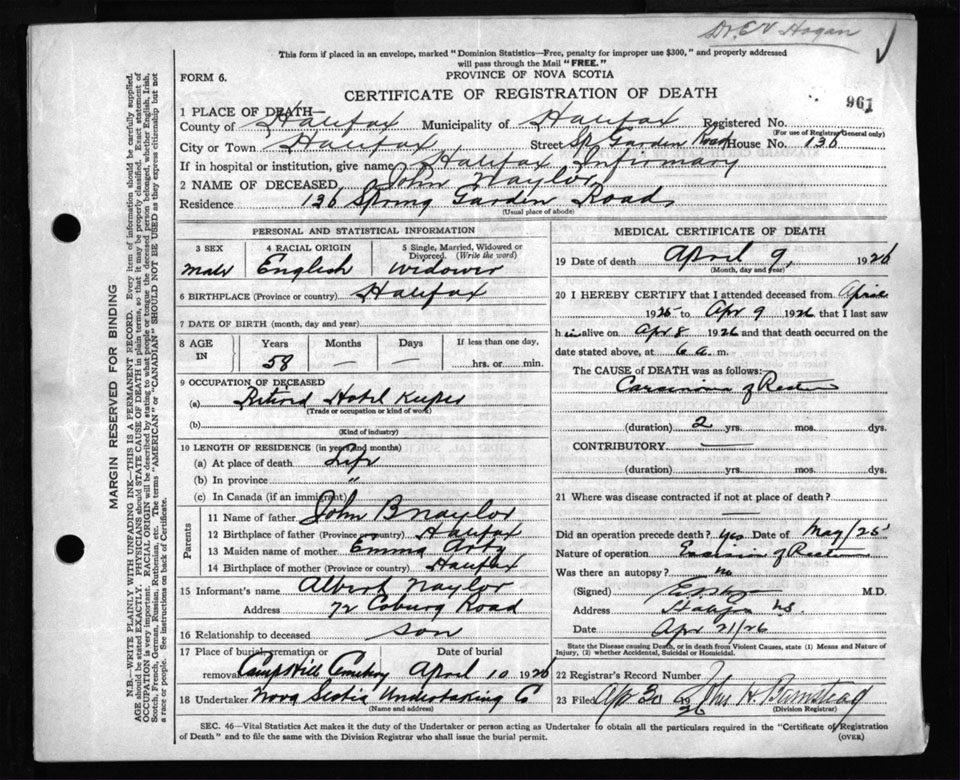 Dr. E V Hogan
This form if placed in an envelope, marked "Dominion Statistics—Free, penalty for improper use $300," and properly addressed
will pass through the Mail "FREE."
FORM 6.
PROVINCE OF NOVA SCOTIA
CERTIFICATE OF REGISTRATION OF DEATH
961
1 PLACE OF DEATH—
County of Halifax Municipality of Halifax Registered No.
(For use of Registrar General only)
City or Town Halifax Street Sp. Garden Road House No. 136
If in hospital or institution, give name Halifax Infirmary
2 NAME OF DECEASED, John Naylor
Residence 136 Spring Garden Road
(Usual place of abode)
PERSONAL AND STATISTICAL INFORMATION
3 SEX Male
4 RACIAL ORIGIN English
5 Single, Married, Widowed or Divorced. (Write the word) widower
6 BIRTHPLACE (Province or country) Halifax
7 DATE OF BIRTH (month, day and year)
8 AGE IN Years 58 Months — Days — If less than one day, hrs. or min.
9 OCCUPATION OF DECEASED
(a) Retired Hotel Keeper
(Trade or occupation or kind of work)
(b)
(Kind of industry)
10 LENGTH OF RESIDENCE (in years and months)
(a) At place of death Life
(b) In province "
(c) In Canada (if an immigrant)
Parents
11 Name of father John B Naylor
12 Birthplace of father (Province or country) Halifax
13 Maiden name of mother Emma
14 Birthplace of mother (Province or country) Halifax
15 Informant's name Albert Naylor
Address 72 Coburg Road
16 Relationship to deceased son
17 Place of burial, cremation or removal Camp Hill Cemetery Date of burial April 10 1926
18 Undertaker Nova Scotia Undertaking C
(Name and address)
MEDICAL CERTIFICATE OF DEATH
19 Date of death April 9, 1926
(Month, day and year)
20 I HEREBY CERTIFY that I attended deceased from April
1926 to Apr 9 1926 that I last saw
h im alive on Apr 8 1926 and that death occurred on
date stated above, at 6 a. m.
The CAUSE of DEATH was as follows:
Carcinoma of Rectum
(duration) 2 yrs. mos. dys.
CONTRIBUTORY
(duration) yrs. mos. dys.
21 Where was disease contracted if not at place of death?
Did an operation precede death? yes Date of May/25
Nature of operation Excision of Rectum
Was there an autopsy? no
(Signed) M.D.
Address Halifax N.S.
Date Apr 21/26
State the Disease causing Death, or in death from Violent Causes, state (1) Means and Nature of Injury, (2) whether Accidental, Suicidal or Homicidal.
22 Registrar's Record Number
23 Filed Apr 30 1926 Jno H. Barnstead
(Division Registrar)
SEC. 46—Vital Statistics Act makes it the duty of the Undertaker or person acting as Undertaker to obtain all the particulars required in the "Certificate of Registration
of Death" and to file the same with the Division Registrar who shall issue the burial permit.
(OVER)
MARGIN RESERVED FOR BINDING
N.B.—WRITE PLAINLY WITH UNFADING INK—THIS IS A PERMANENT RECORD. Every item of information should be carefully supplied.
AGE should be stated EXACTLY. PHYSICIANS should STATE CAUSE OF DEATH in plain terms, so that it may be properly classified. Exact statement of
OCCUPATION is very important. RACIAL ORIGIN will be described by stating to what people or tongue the deceased person belonged, whether English, Irish,
Scotch, French, German, Russian, Ruthenian, etc. The terms "AMERICAN" or "CANADIAN" SHOULD NOT BE USED as they express citizenship but not
a race or people. See instructions on back of Certificate.